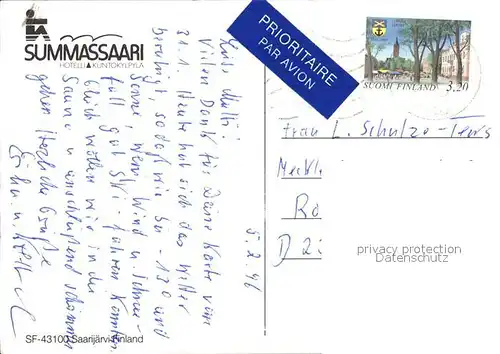 SUMMASSAARI
HOTELLI KUNTOKYLPYLÄ
PRIORITAIRE
PAR AVION
SUOMI FINLAND
3,20
Vielen Dank für Deine Karte vom
31.1. Heute hat sich das Wetter
beruhigt, sodaß wir bei -13° und
Sonne, wenn Wind u. Schnee-
fall gut Ski-fahren konnten.
Gleich wollen wir in die
Sauna u. anschließend schwimmen
gehen. Herzliche Grüße
5.2.96
Frau L. Schulze-
Meckl
Ro
D 2
privacy protection
Datenschutz
SF-43100 Saarijärvi Finland